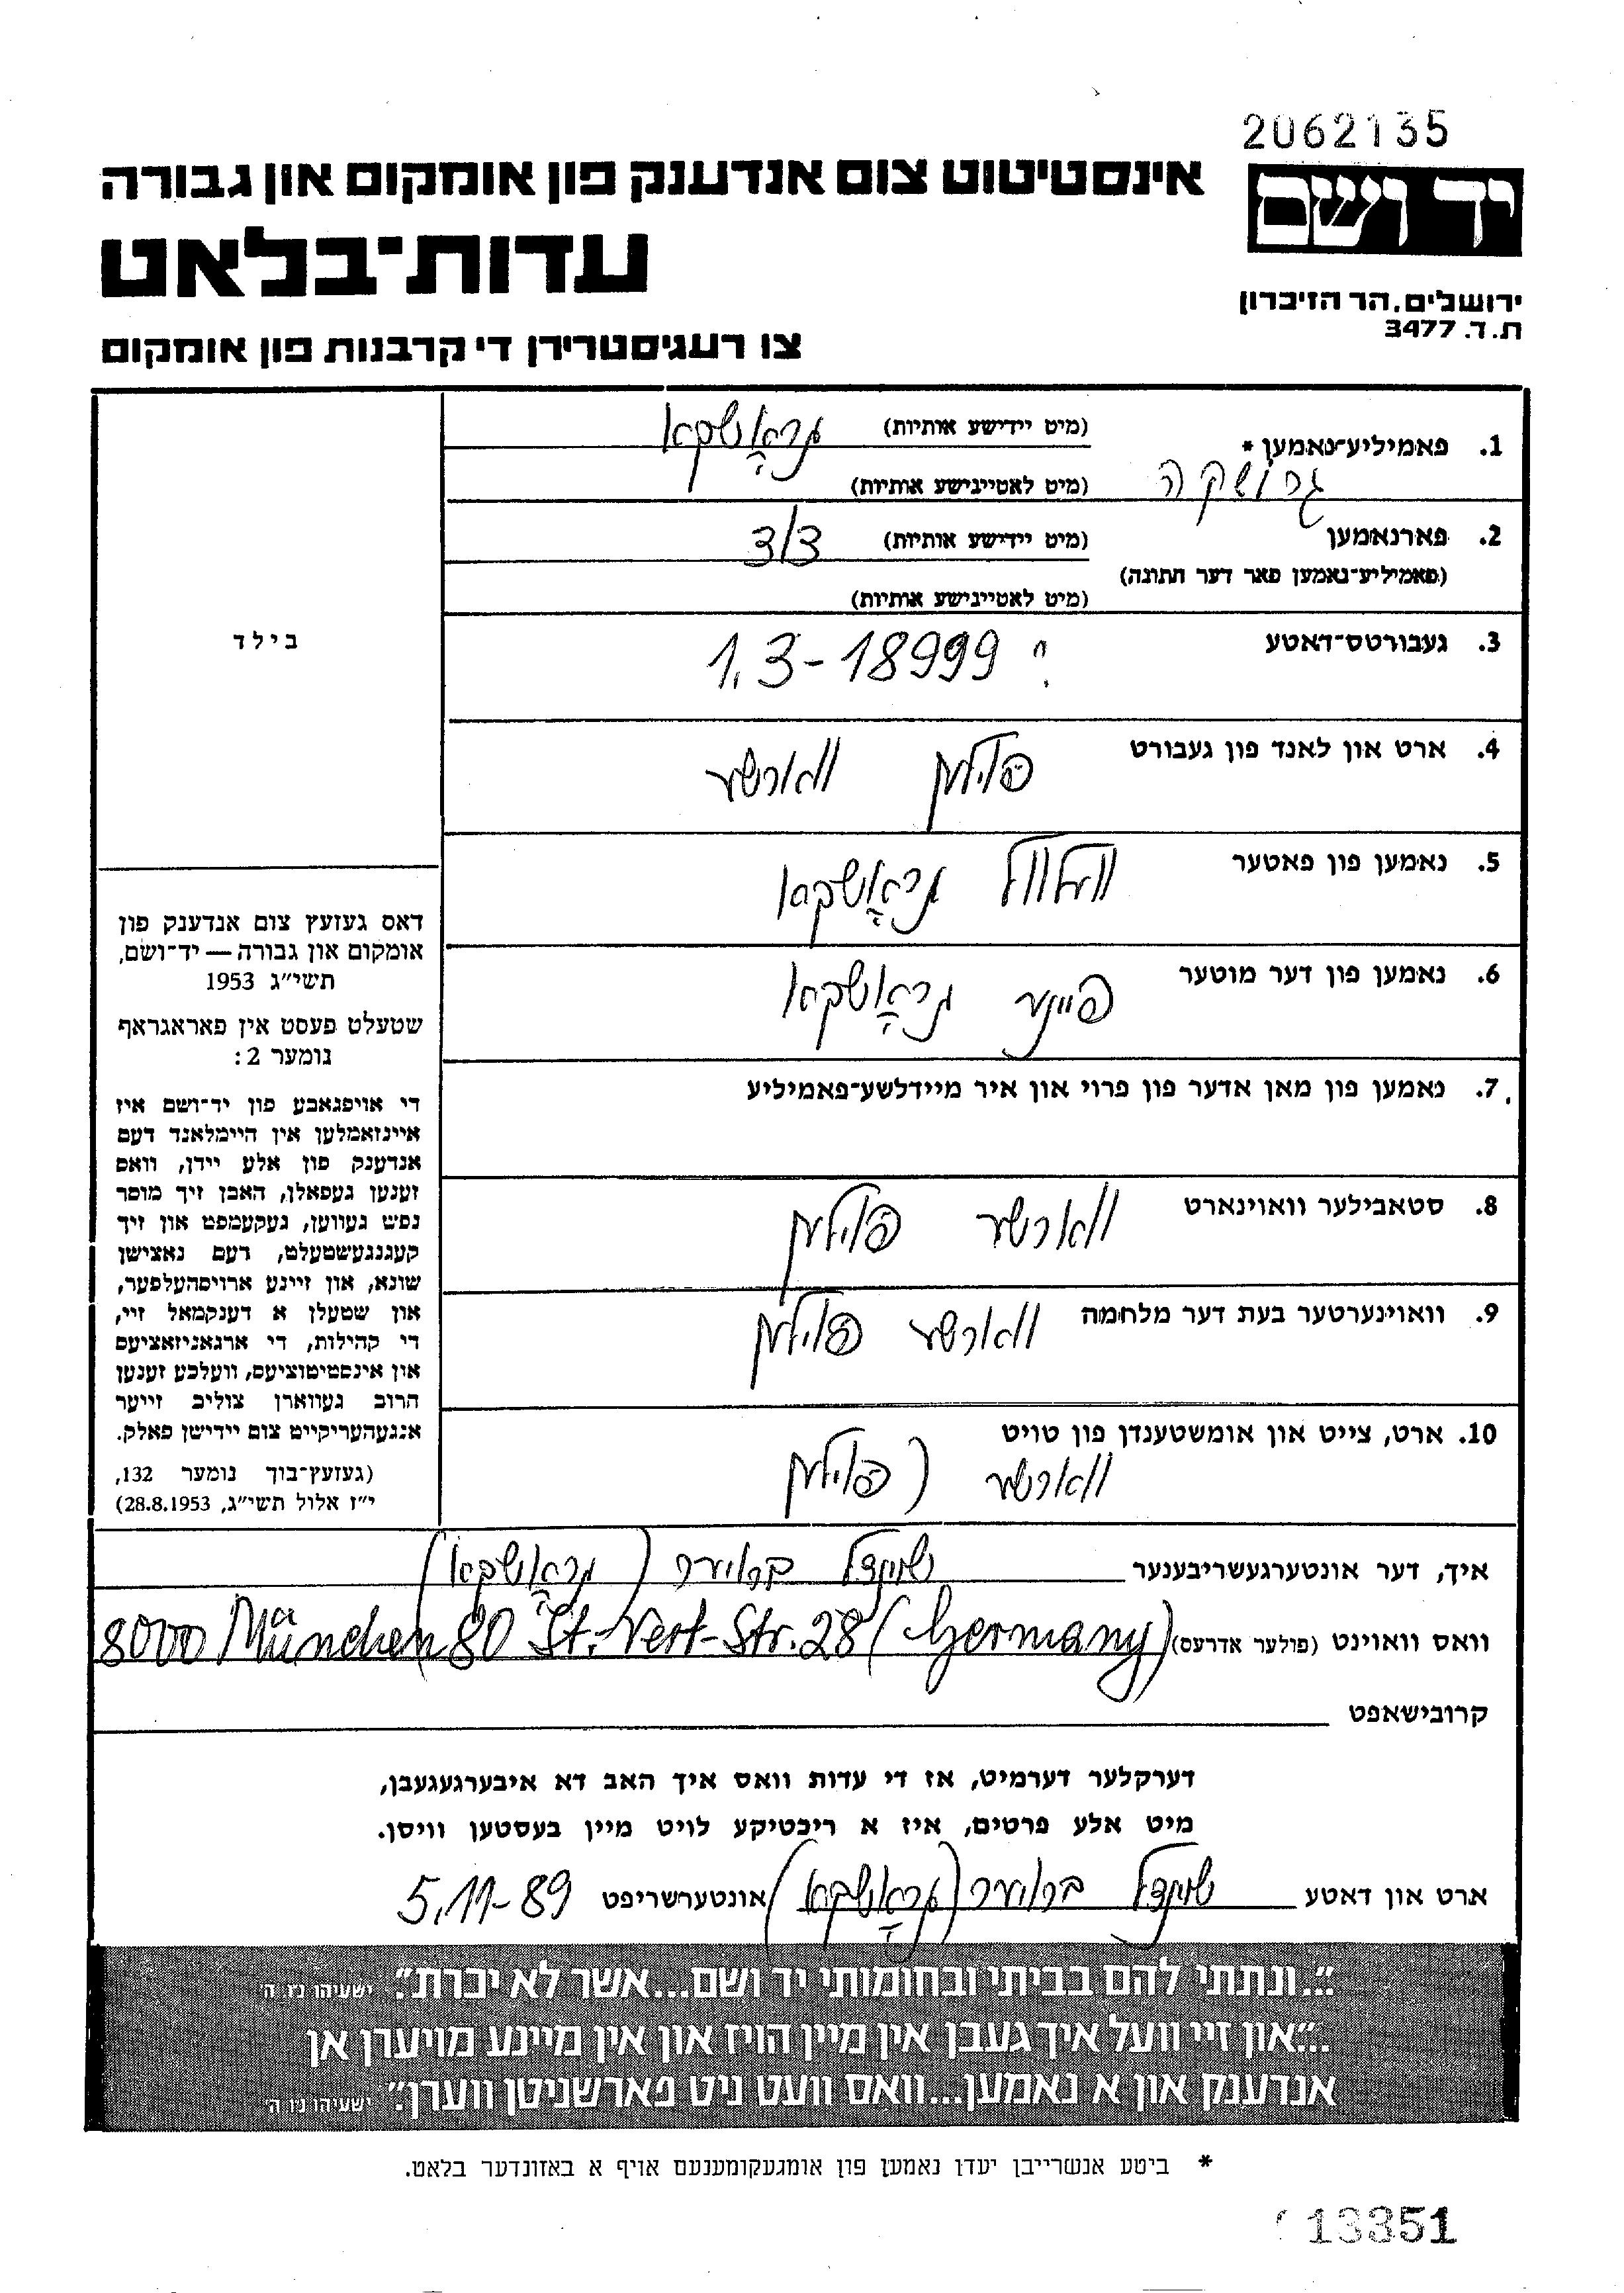 2062135
יד ושם
אינסטיטוט צום אנדענק פון אומקום און גבורה
עדות־בלאט
ירושלים, הר הזיכרון
ת.ד. 3477
צו רעגיסטרירן די קרבנות פון אומקום
1. פאמיליע־נאמען * (מיט יידישע אותיות) גראָשקאָ
גרושקה (מיט לאטיינישע אותיות)
2. פארנאמען (מיט יידישע אותיות)
(פאמיליע־נאמען פאר דער חתונה)
(מיט לאטיינישע אותיות)
3. געבורטס־דאטע 1.3-18999
4. ארט און לאנד פון געבורט פוילען ווארשע
5. נאמען פון פאטער וועלוול גראָשקאָ
6. נאמען פון דער מוטער פייגע גראָשקאָ
7. נאמען פון מאן אדער פון פרוי און איר מיידלשע־פאמיליע
8. סטאבילער וואוינארט ווארשע פוילען
9. וואוינערטער בעת דער מלחמה ווארשע פוילען
10. ארט, צייט און אומשטענדן פון טויט
ווארשע ( פוילען
בילד
דאס געזעץ צום אנדענק פון
אומקום און גבורה — יד־ושם,
תשי״ג 1953
שטעלט פעסט אין פאראגראף
נומער 2:
די אויפגאבע פון יד־ושם איז
איינזאמלען אין היימלאנד דעם
אנדענק פון אלע יידן, וואס
זענען געפאלן, האבן זיך מוסר
נפש געווען, געקעמפט און זיך
קעגנגעשטעלט, דעם נאצישן
שונא, און זיינע ארויסהעלפער,
און שטעלן א דענקמאל זיי,
די קהילות, די ארגאניזאציעס
און אינסטיטוציעס, וועלכע זענען
חרוב געווארן צוליב זייער
אנגעהעריקייט צום יידישן פאלק.
(געזעץ־בוך נומער 132,
י״ז אלול תשי״ג, 28.8.1953)
איך, דער אונטערגעשריבענער (גראָשקאָ)
וואס וואוינט (פולער אדרעס) 8000 München 80 St.-Veit-Str. 28 (Germany)
קרובישאפט
דערקלער דערמיט, אז די עדות וואס איך האב דא איבערגעגעבן,
מיט אלע פרטים, איז א ריכטיקע לויט מיין בעסטען וויסן.
ארט און דאטע (גראָשקאָ) אונטערשריפט 5.11-89
״...ונתתי להם בביתי ובחומותי יד ושם...אשר לא יכרת״. ישעיהו נו, ה
״...און זיי וועל איך געבן אין מיין הויז און אין מיינע מויערן אן
אנדענק און א נאמען...וואס וועט ניט פארשניטן ווערן״. ישעיהו נו, ה
* ביטע אנשרייבן יעדן נאמען פון אומגעקומענעם אויף א באזונדער בלאט.
13351